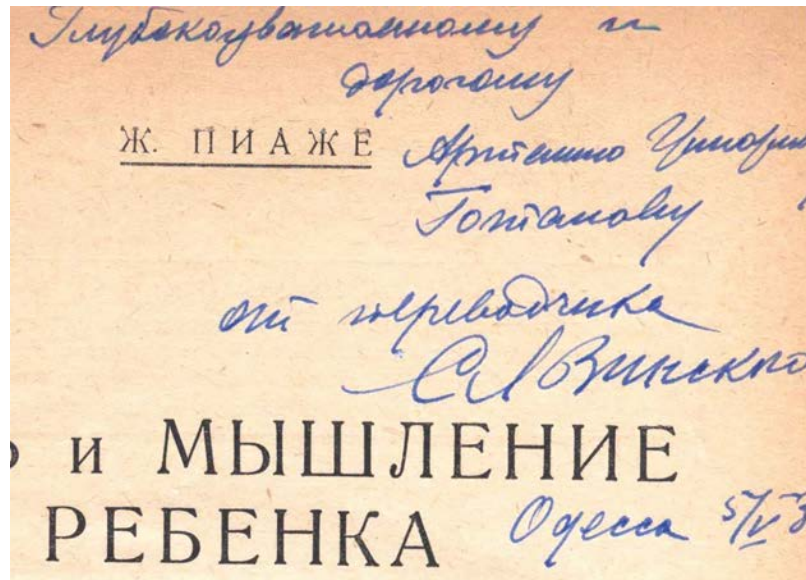 Глубокоуважаемому и
дорогому
Ж. ПИАЖЕ
Артемию Григори
Готалову
от переводчика
Винский
и МЫШЛЕНИЕ
РЕБЕНКА
Одесса 5/V 3